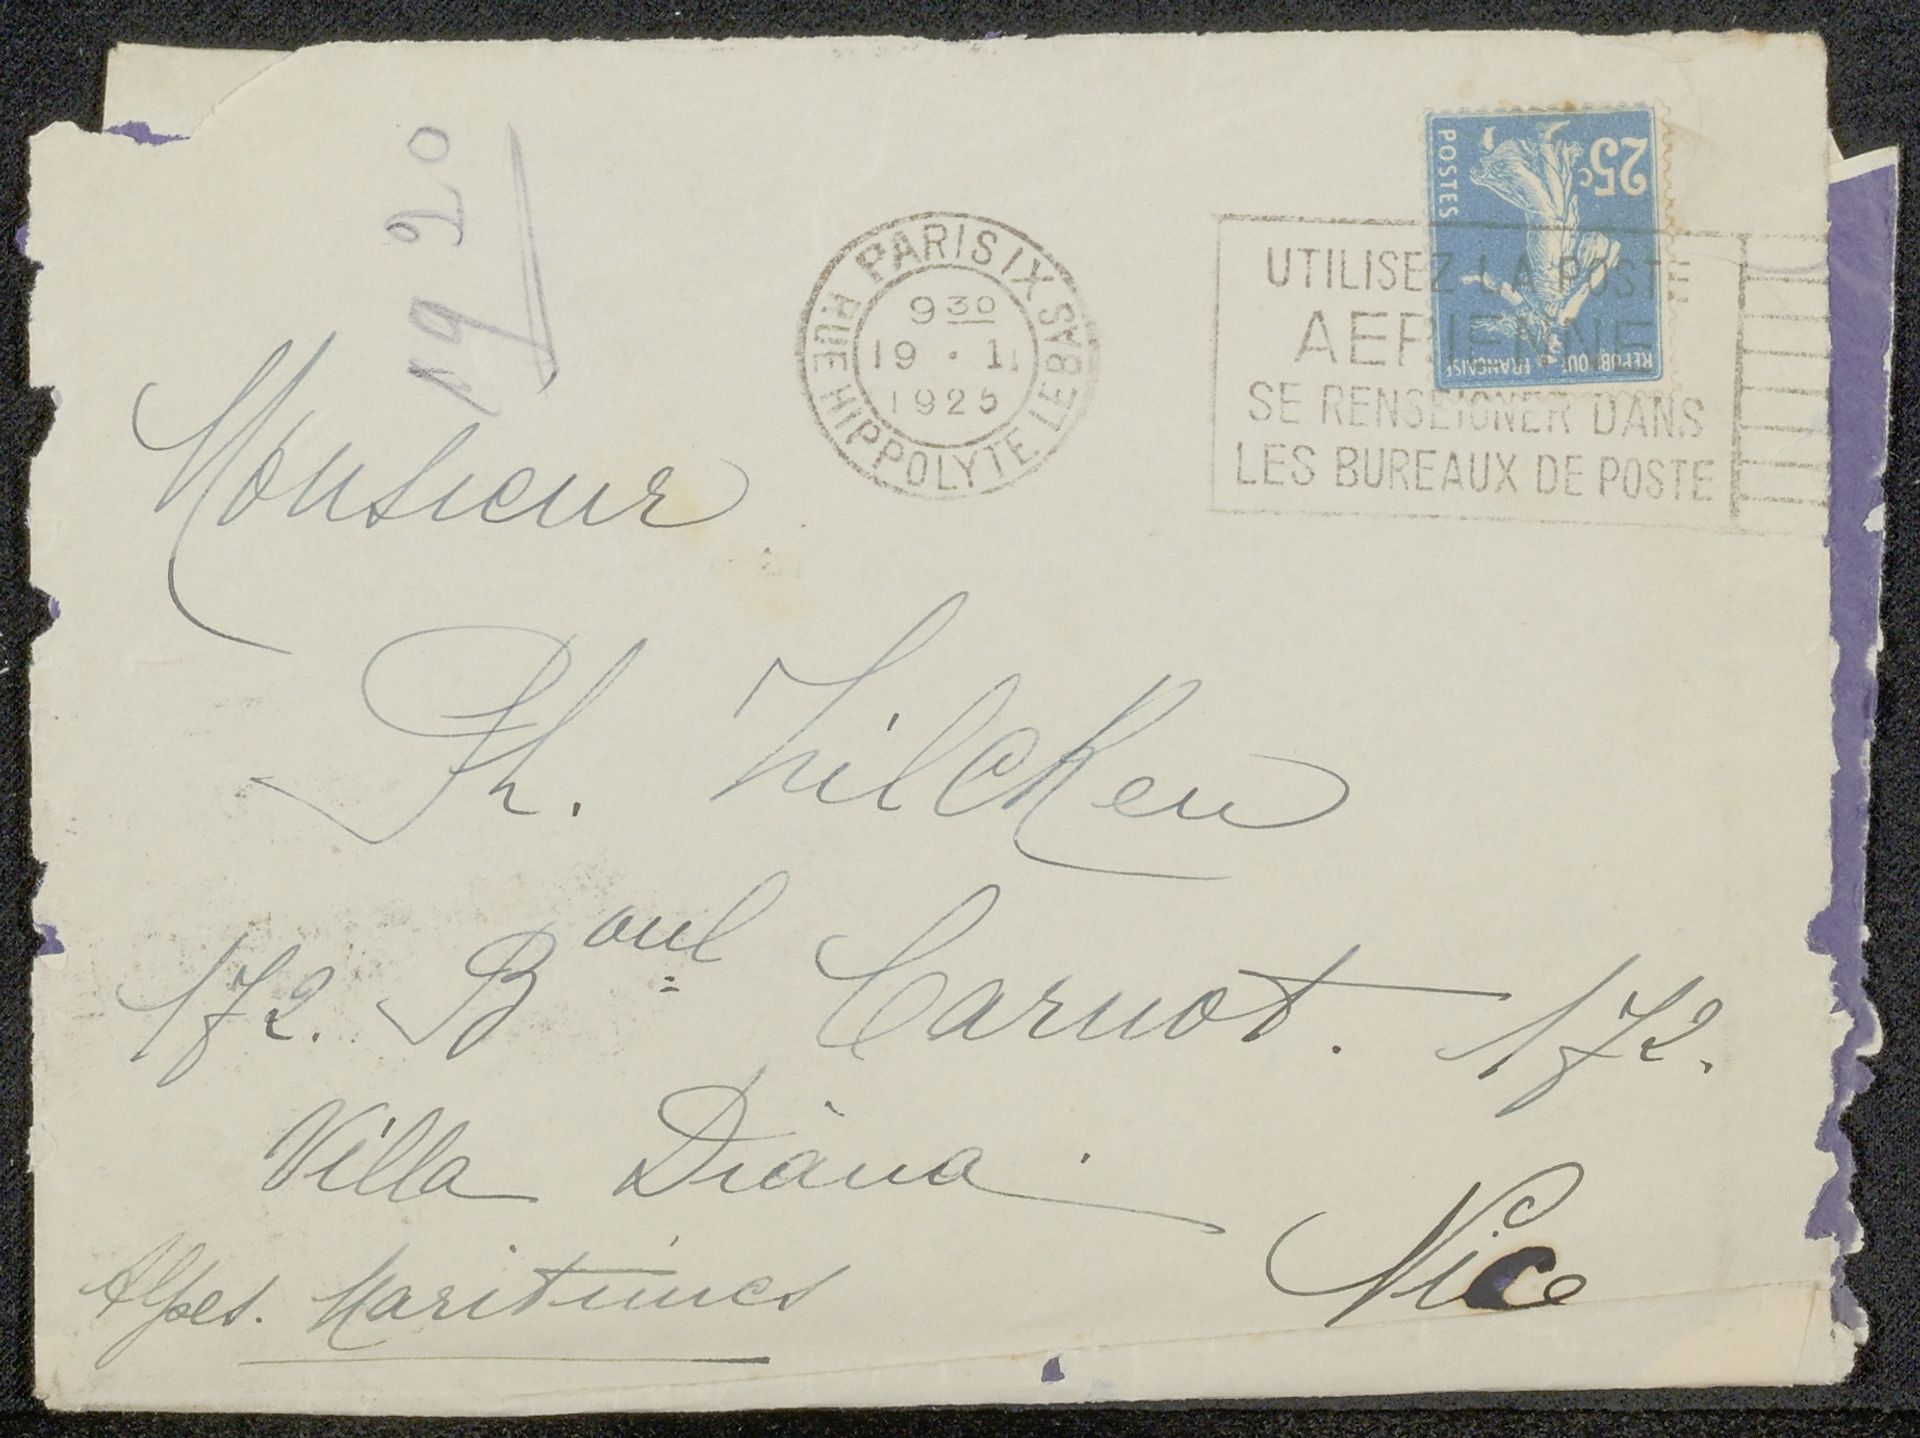 1920
PARIS IX
RUE HIPPOLYTE LEBAS
9 30
19 . 1
1925
25c
POSTES
REPUBLIQUE FRANCAISE
UTILISEZ LA POSTE
AERIENNE
SE RENSEIGNER DANS
LES BUREAUX DE POSTE
Monsieur
Ph. Zilcken
172. Boul Carnot. 172.
Villa Diana.
Nice
Alpes. Maritimes